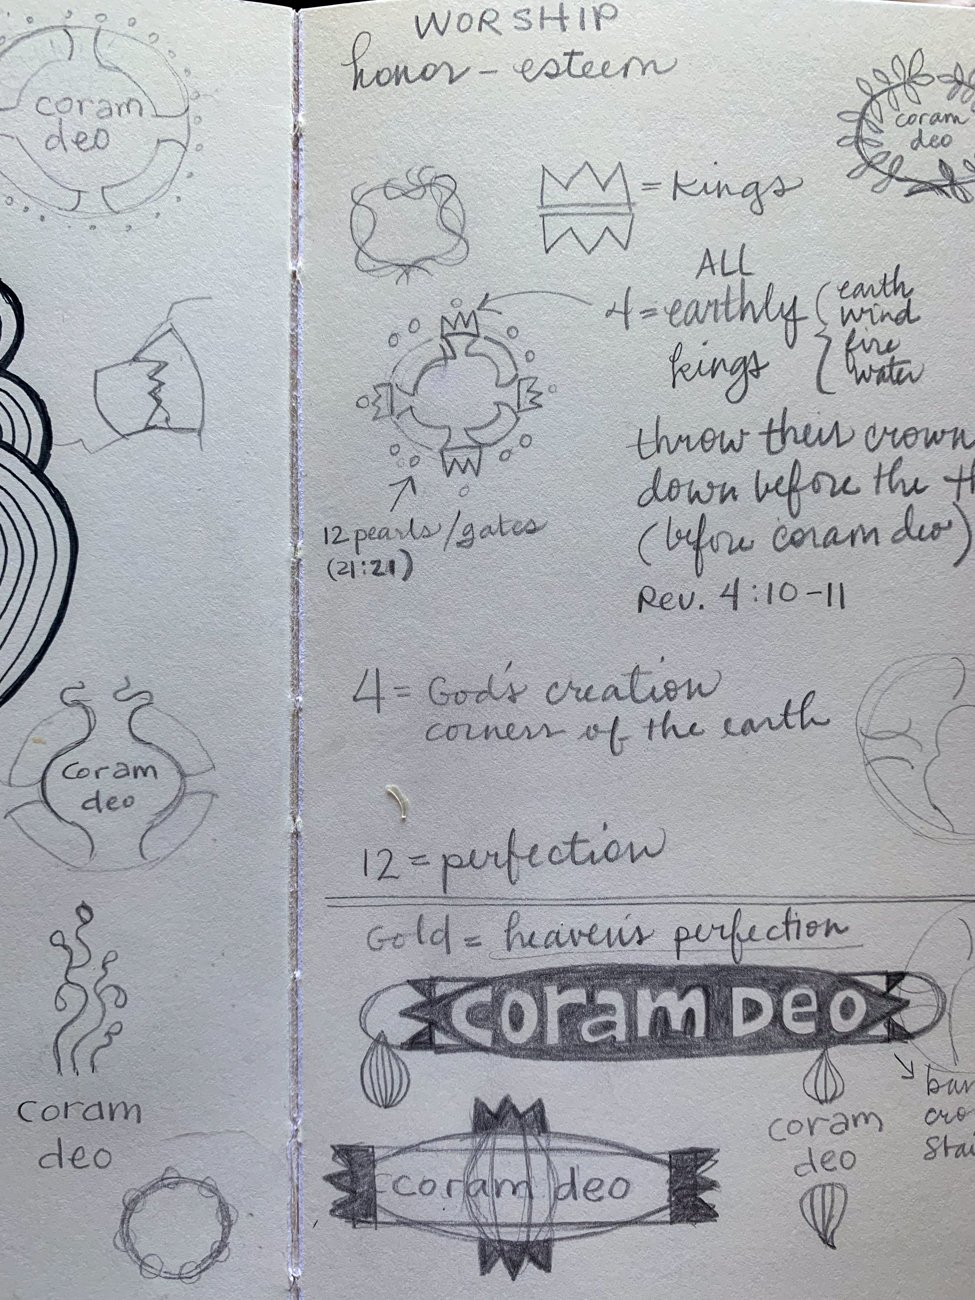 coram
deo
coram
deo
coram
deo
WORSHIP
honor - esteem
coram
deo
= kings
ALL
4 = earthly
kings
earth
wind
fire
water
throw their crown
down before the
(before coram deo)
Rev. 4:10-11
12 pearls/gates
(21:21)
4 = God's creation
corners of the earth
12 = perfection
Gold = heaven's perfection
coram Deo
coram deo
coram
deo